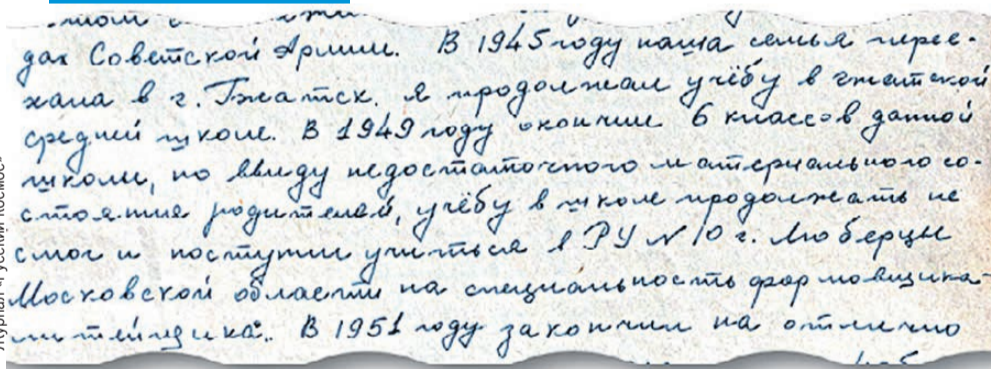 дах Советской Армии. В 1945 году наша семья перее-
хала в г. Гжатск. Я продолжал учёбу в гжатской
средней школе. В 1949 году окончил 6 классов данной
школы, но ввиду недостаточного материального со-
стояния родителей, учёбу в школе продолжать не
смог и поступил учиться в РУ № 10 г. Люберцы
Московской области на специальность формовщика-
литейщика. В 1951 году закончил на отлично
Журнал «Русский космос»